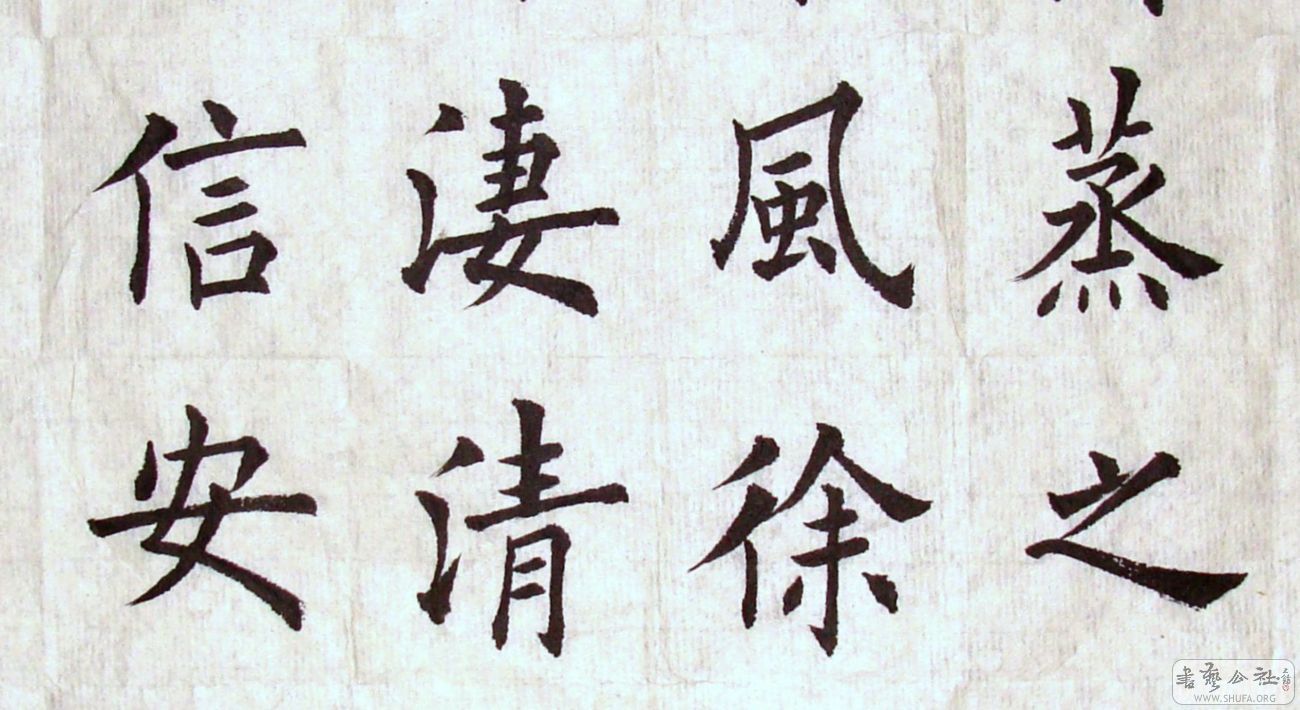 蒸之
風徐
淒清
信安
書藝公社
WWW.SHUFA.ORG